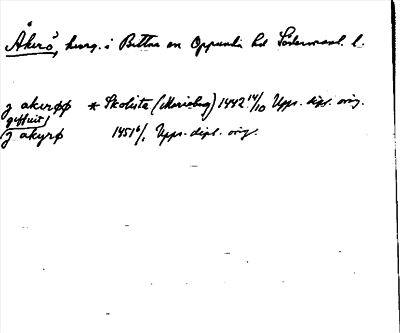 Åkerö, herrg. i Bettna sn Oppunda hd Södermanl. l.
j akerøø * Skokloster (Mariesby) 1442 14/10 Upps. dipl. orig.
j akyrø 1451 6/1 Upps. dipl. orig.